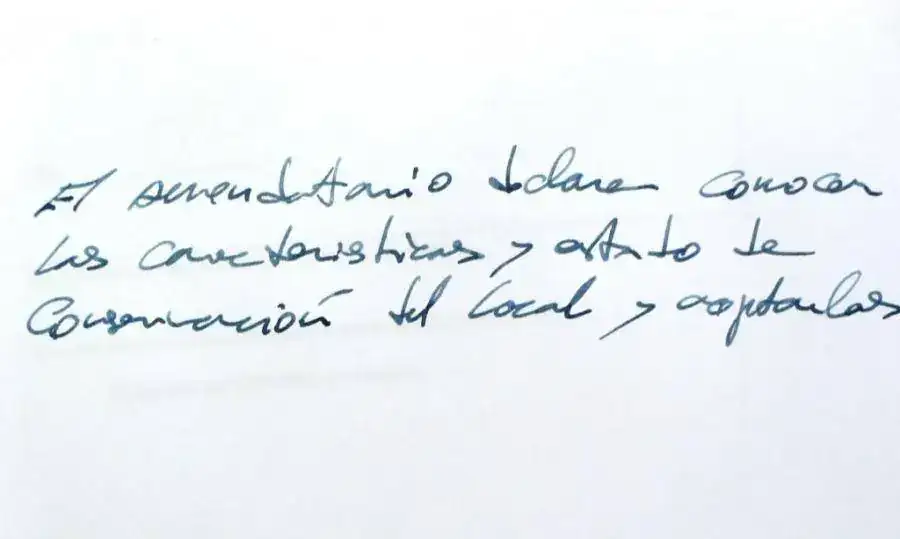 El arrendatario declara conocer
las características y estado de
Conservación del local y aceptarlas